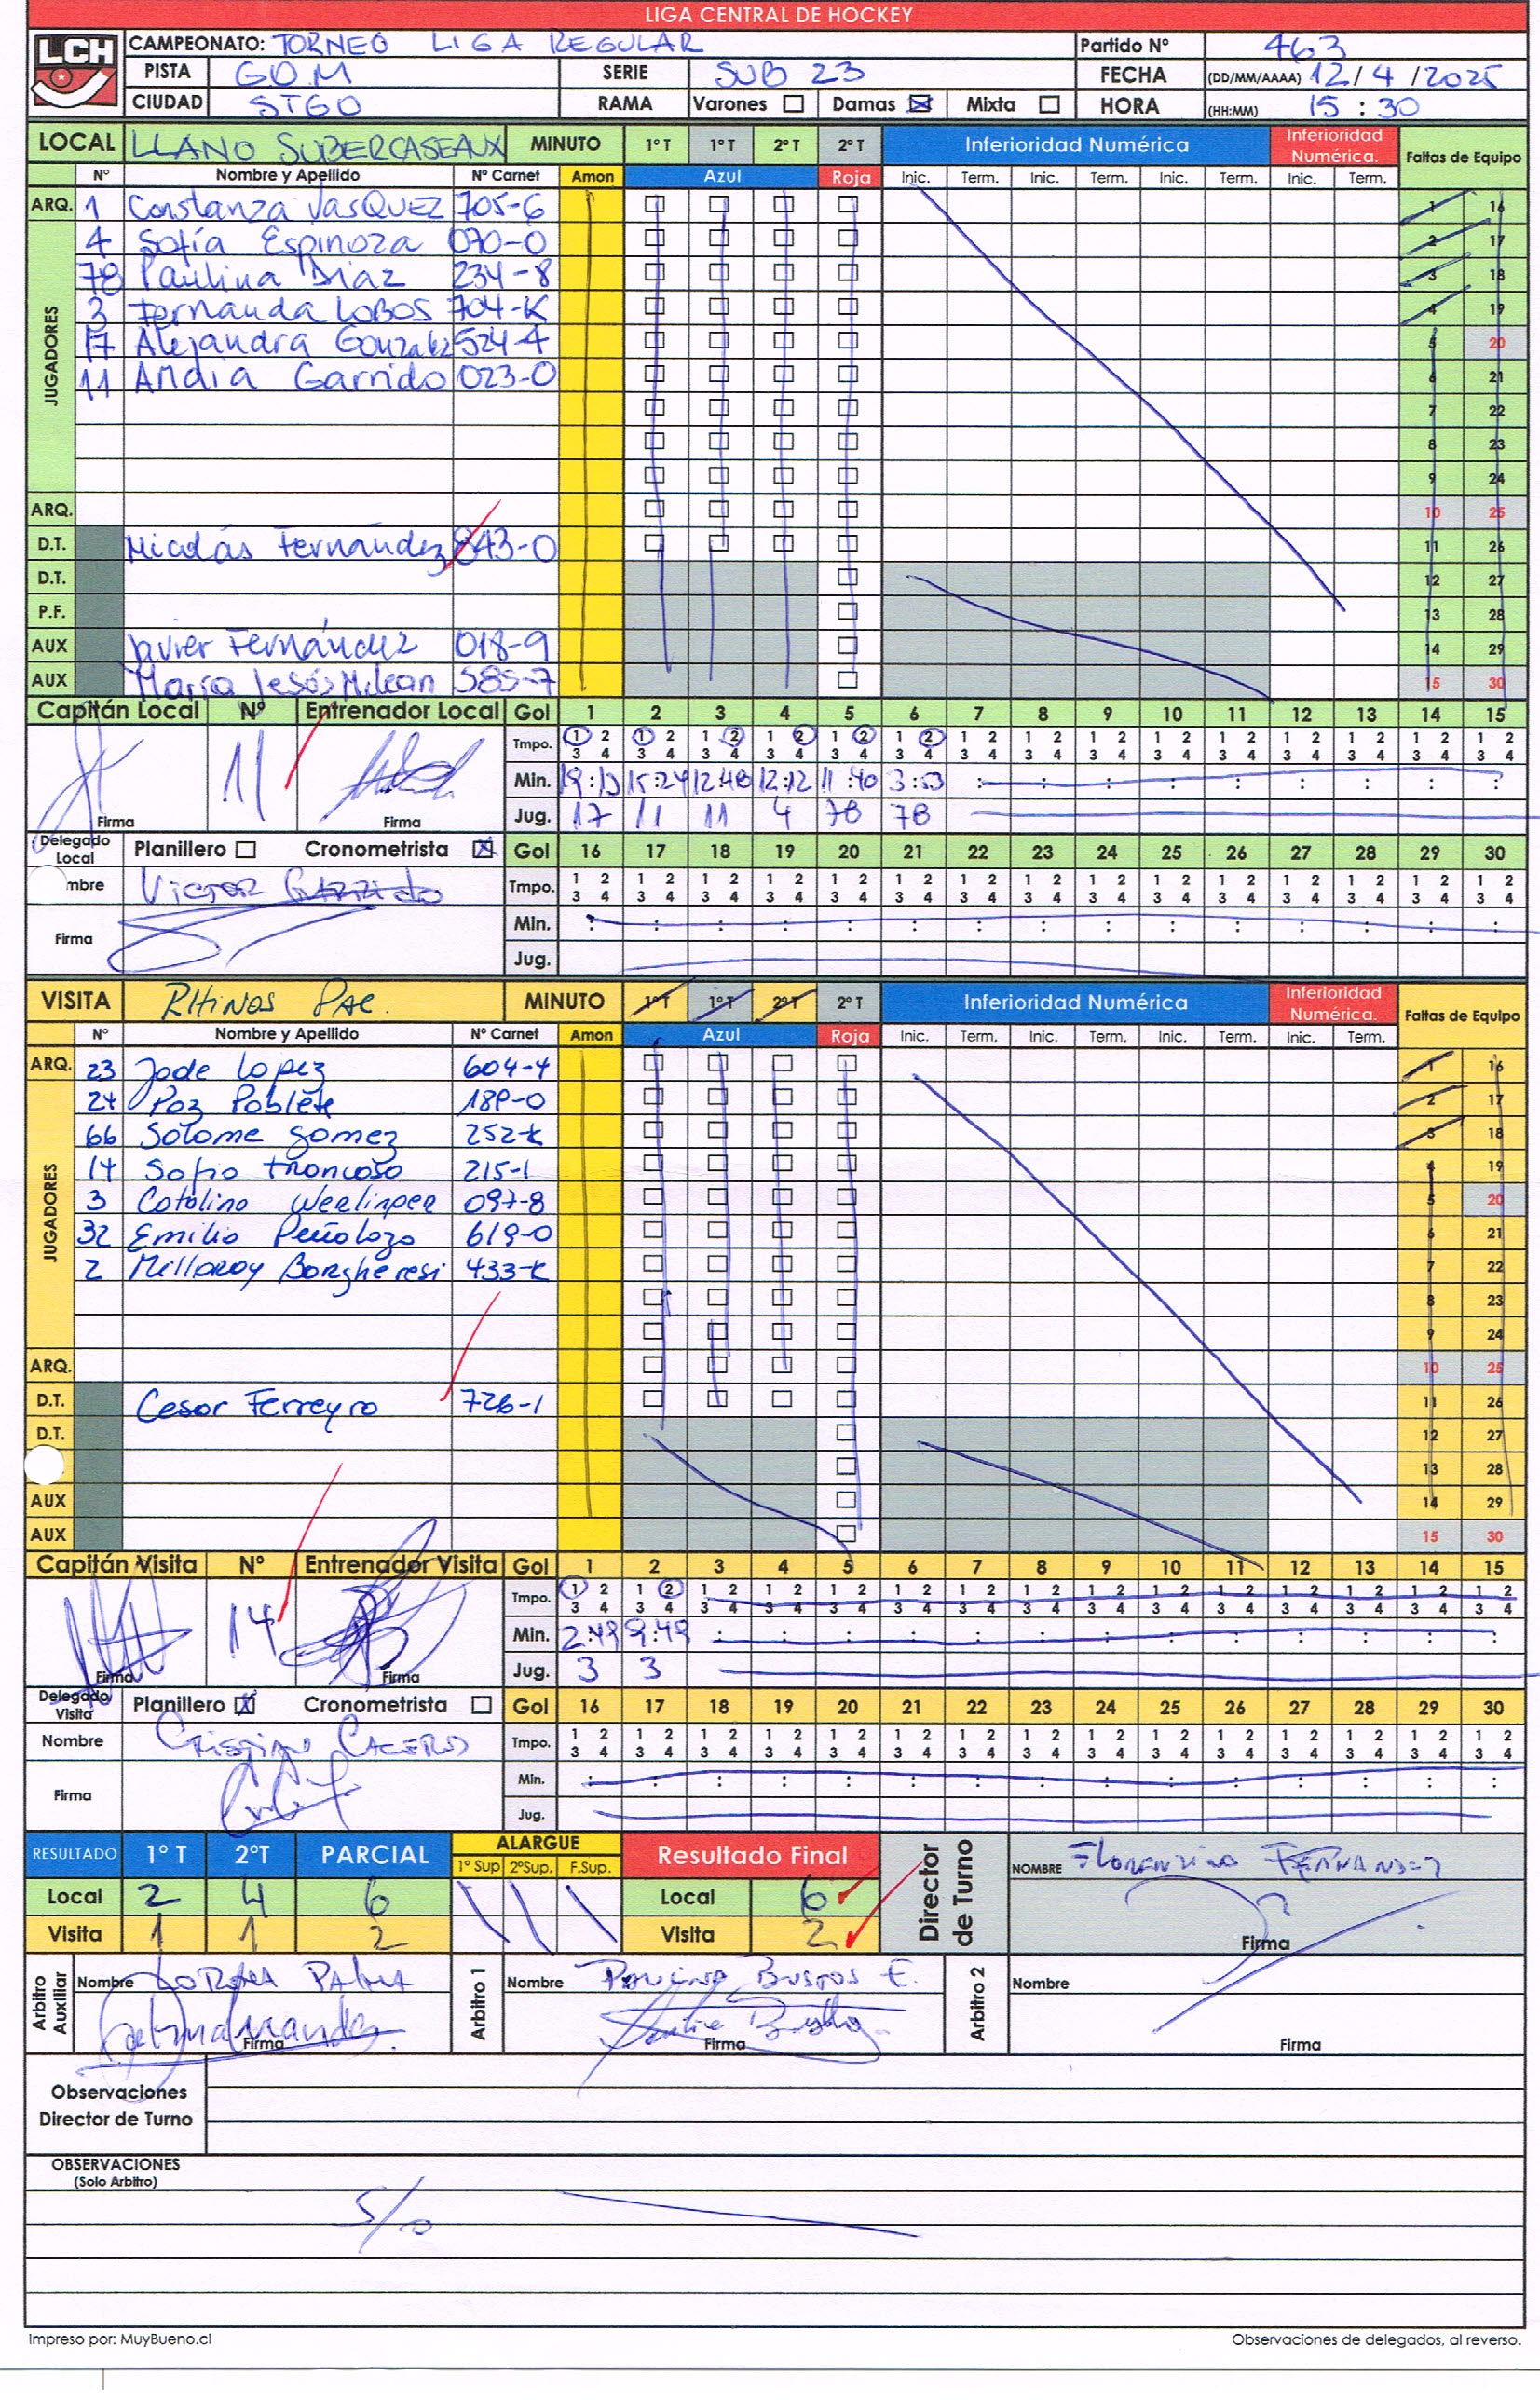 LIGA CENTRAL DE HOCKEY
LCH CAMPEONATO: TORNEO LIGA REGULAR Partido Nº 463
PISTA GDM SERIE SUB 23 FECHA (DD/MM/AAAA) 12/4/2025
CIUDAD STGO RAMA Varones Damas Mixta HORA (HH:MM) 15:30
LOCAL LLANO SUBERCASEAUX MINUTO 1º T 1º T 2º T 2º T Inferioridad Numérica Inferioridad Numérica. Faltas de Equipo
Nº Nombre y Apellido Nº Carnet Amon Azul Roja Inic. Term. Inic. Term. Inic. Term. Inic. Term.
ARQ. 1 Constanza VasQUEZ 705-6 1 16
JUGADORES
4 Sofía Espinoza 070-0 2 17
78 Paulina Diaz 234-8 3 18
3 Fernanda LOBOS 704-K 4 19
17 Alejandra Gonzalez 524-4 5 20
11 Andia Garrido 023-0 6 21
7 22
8 23
9 24
ARQ. 10 25
D.T. Nicolás Fernández 843-0 11 26
D.T. 12 27
P.F. 13 28
AUX Javier Fernández 018-9 14 29
AUX María Jesús Milean 585-7 15 30
Capitán Local Nº Entrenador Local Gol 1 2 3 4 5 6 7 8 9 10 11 12 13 14 15
Tmpo. 1 2 1 2 1 2 1 2 1 2 1 2 1 2 1 2 1 2 1 2 1 2 1 2 1 2 1 2 1 2
3 4 3 4 3 4 3 4 3 4 3 4 3 4 3 4 3 4 3 4 3 4 3 4 3 4 3 4 3 4
11 Min. 19:13 15:24 12:48 12:12 11:40 3:53 : : : : : : : : :
Firma Firma Jug. 17 11 11 4 78 78
Delegado Local Planillero Cronometrista Gol 16 17 18 19 20 21 22 23 24 25 26 27 28 29 30
mbre Victor Garrido Tmpo. 1 2 1 2 1 2 1 2 1 2 1 2 1 2 1 2 1 2 1 2 1 2 1 2 1 2 1 2 1 2
3 4 3 4 3 4 3 4 3 4 3 4 3 4 3 4 3 4 3 4 3 4 3 4 3 4 3 4 3 4
Firma Min. : : : : : : : : : : : : : : :
Jug.
VISITA RHINOS PAC. MINUTO 1º T 1º T 2º T 2º T Inferioridad Numérica Inferioridad Numérica. Faltas de Equipo
Nº Nombre y Apellido Nº Carnet Amon Azul Roja Inic. Term. Inic. Term. Inic. Term. Inic. Term.
ARQ. 23 Jade Lopez 604-4 1 16
JUGADORES
24 Paz Poblete 189-0 2 17
66 Salome Gomez 252-K 3 18
14 Sofia troncoso 215-1 4 19
3 Catalina Werlinger 097-8 5 20
32 Emilia Peñaloza 619-0 6 21
2 Millaray Borgheresi 433-K 7 22
8 23
9 24
ARQ. 10 25
D.T. Cesar Ferreyro 726-1 11 26
D.T. 12 27
13 28
AUX 14 29
AUX 15 30
Capitán Visita Nº Entrenador Visita Gol 1 2 3 4 5 6 7 8 9 10 11 12 13 14 15
Tmpo. 1 2 1 2 1 2 1 2 1 2 1 2 1 2 1 2 1 2 1 2 1 2 1 2 1 2 1 2 1 2
3 4 3 4 3 4 3 4 3 4 3 4 3 4 3 4 3 4 3 4 3 4 3 4 3 4 3 4 3 4
14 Min. 2:49 9:49 : : : : : : : : : : : : :
Firma Firma Jug. 3 3
Delegado Visita Planillero Cronometrista Gol 16 17 18 19 20 21 22 23 24 25 26 27 28 29 30
Nombre Cristian Caceres Tmpo. 1 2 1 2 1 2 1 2 1 2 1 2 1 2 1 2 1 2 1 2 1 2 1 2 1 2 1 2 1 2
3 4 3 4 3 4 3 4 3 4 3 4 3 4 3 4 3 4 3 4 3 4 3 4 3 4 3 4 3 4
Firma Min. : : : : : : : : : : : : : : :
Jug.
RESULTADO 1º T 2ºT PARCIAL ALARGUE 1º Sup 2ºSup. F.Sup. Resultado Final Director de Turno NOMBRE Florentino Fernandez
Local 2 4 6 Local 6
Visita 1 1 2 Visita 2 Firma
Arbitro Auxiliar Nombre LORENA PALMA Arbitro 1 Nombre PAULINA BUSTOS E. Arbitro 2 Nombre
Firma Firma Firma
Observaciones
Director de Turno
OBSERVACIONES
(Solo Arbitro)
S/O
Impreso por: MuyBueno.cl Observaciones de delegados, al reverso.